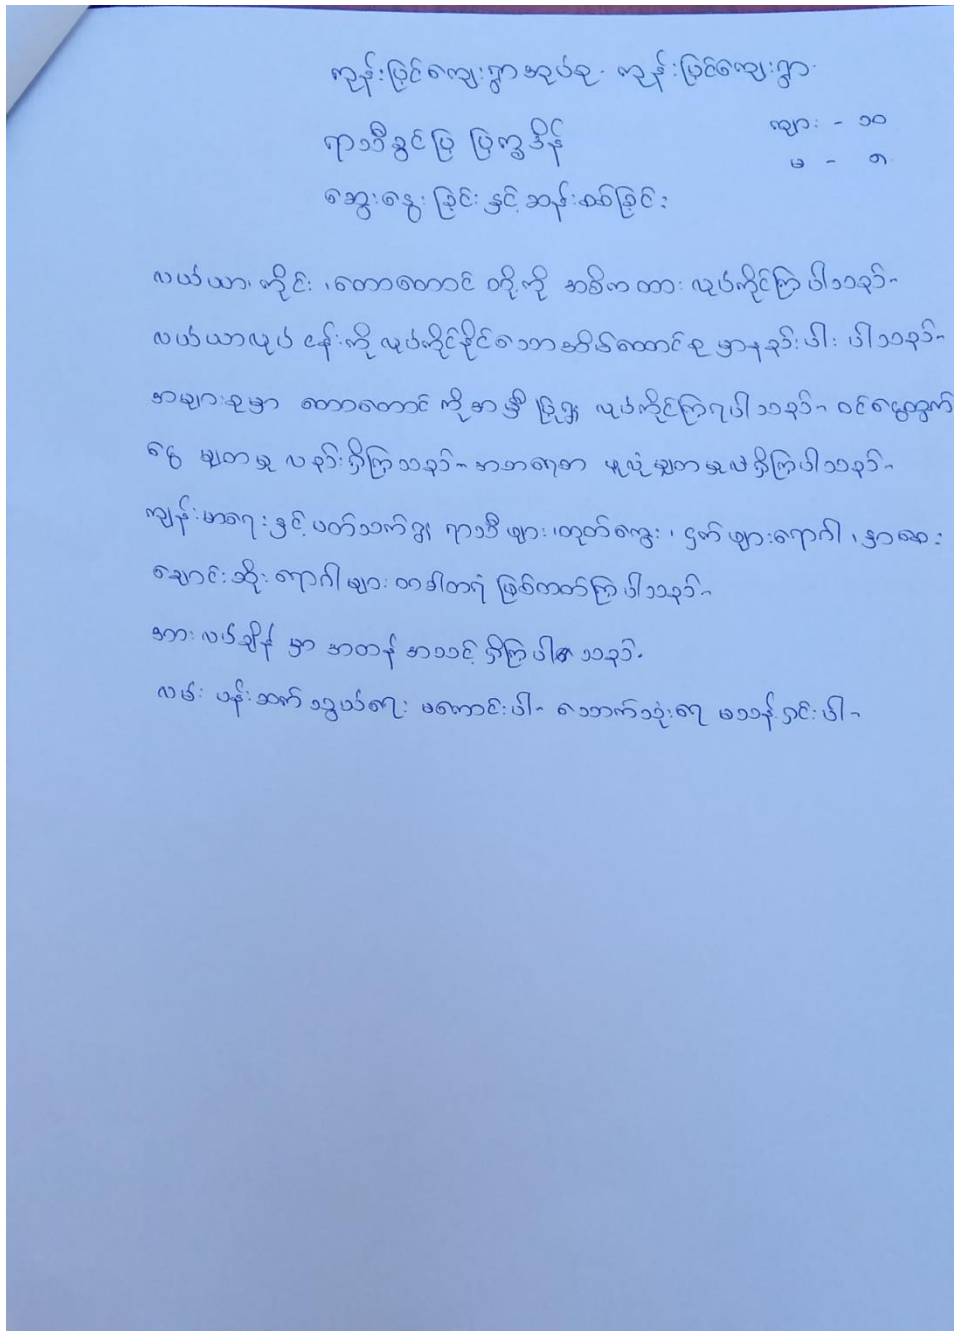 ကုန်းမြင့်ကျေးရွာအုပ်စု၊ ကုန်းမြင့်ကျေးရွာ
ကျား - ၁၀
ရာသီခွင်ပြ ပြက္ခဒိန်
မ - ၈
ဆွေးနွေးခြင်းနှင့်ဆန်းစစ်ခြင်း
လယ်ယာ၊ ကိုင်း၊ တောတောင် တို့ကို အဓိကထား လုပ်ကိုင်ကြပါသည်။
လယ်ယာလုပ်ငန်းကို လုပ်ကိုင်နိုင်သော အိမ်ထောင်စု မှာနည်းပါး ပါသည်။
အများစုမှာ တောတောင် ကိုအမှီပြု၍ လုပ်ကိုင်ကြရပါသည်။ ဝင်ငွေထွက်
ငွေ မျှတမှု လည်းရှိကြသည်။ အစားအစာ ဖူလုံမျှတမှုလဲရှိကြပါသည်။
ကျန်းမာရေးနှင့်ပတ်သက်၍ ရာသီဖျား၊ တုတ်ကွေး၊ ငှက်ဖျားရောဂါ၊ နှာစေး
ချောင်းဆိုး ရောဂါများ တခါတရံ ဖြစ်တတ်ကြပါသည်။
အားလပ်ချိန် မှာ အတန် အသင့် ရှိကြပါသည်။
လမ်း ပန်းဆက်သွယ်ရေး မကောင်းပါ။ သောက်သုံးရေ မသန့်ရှင်းပါ။